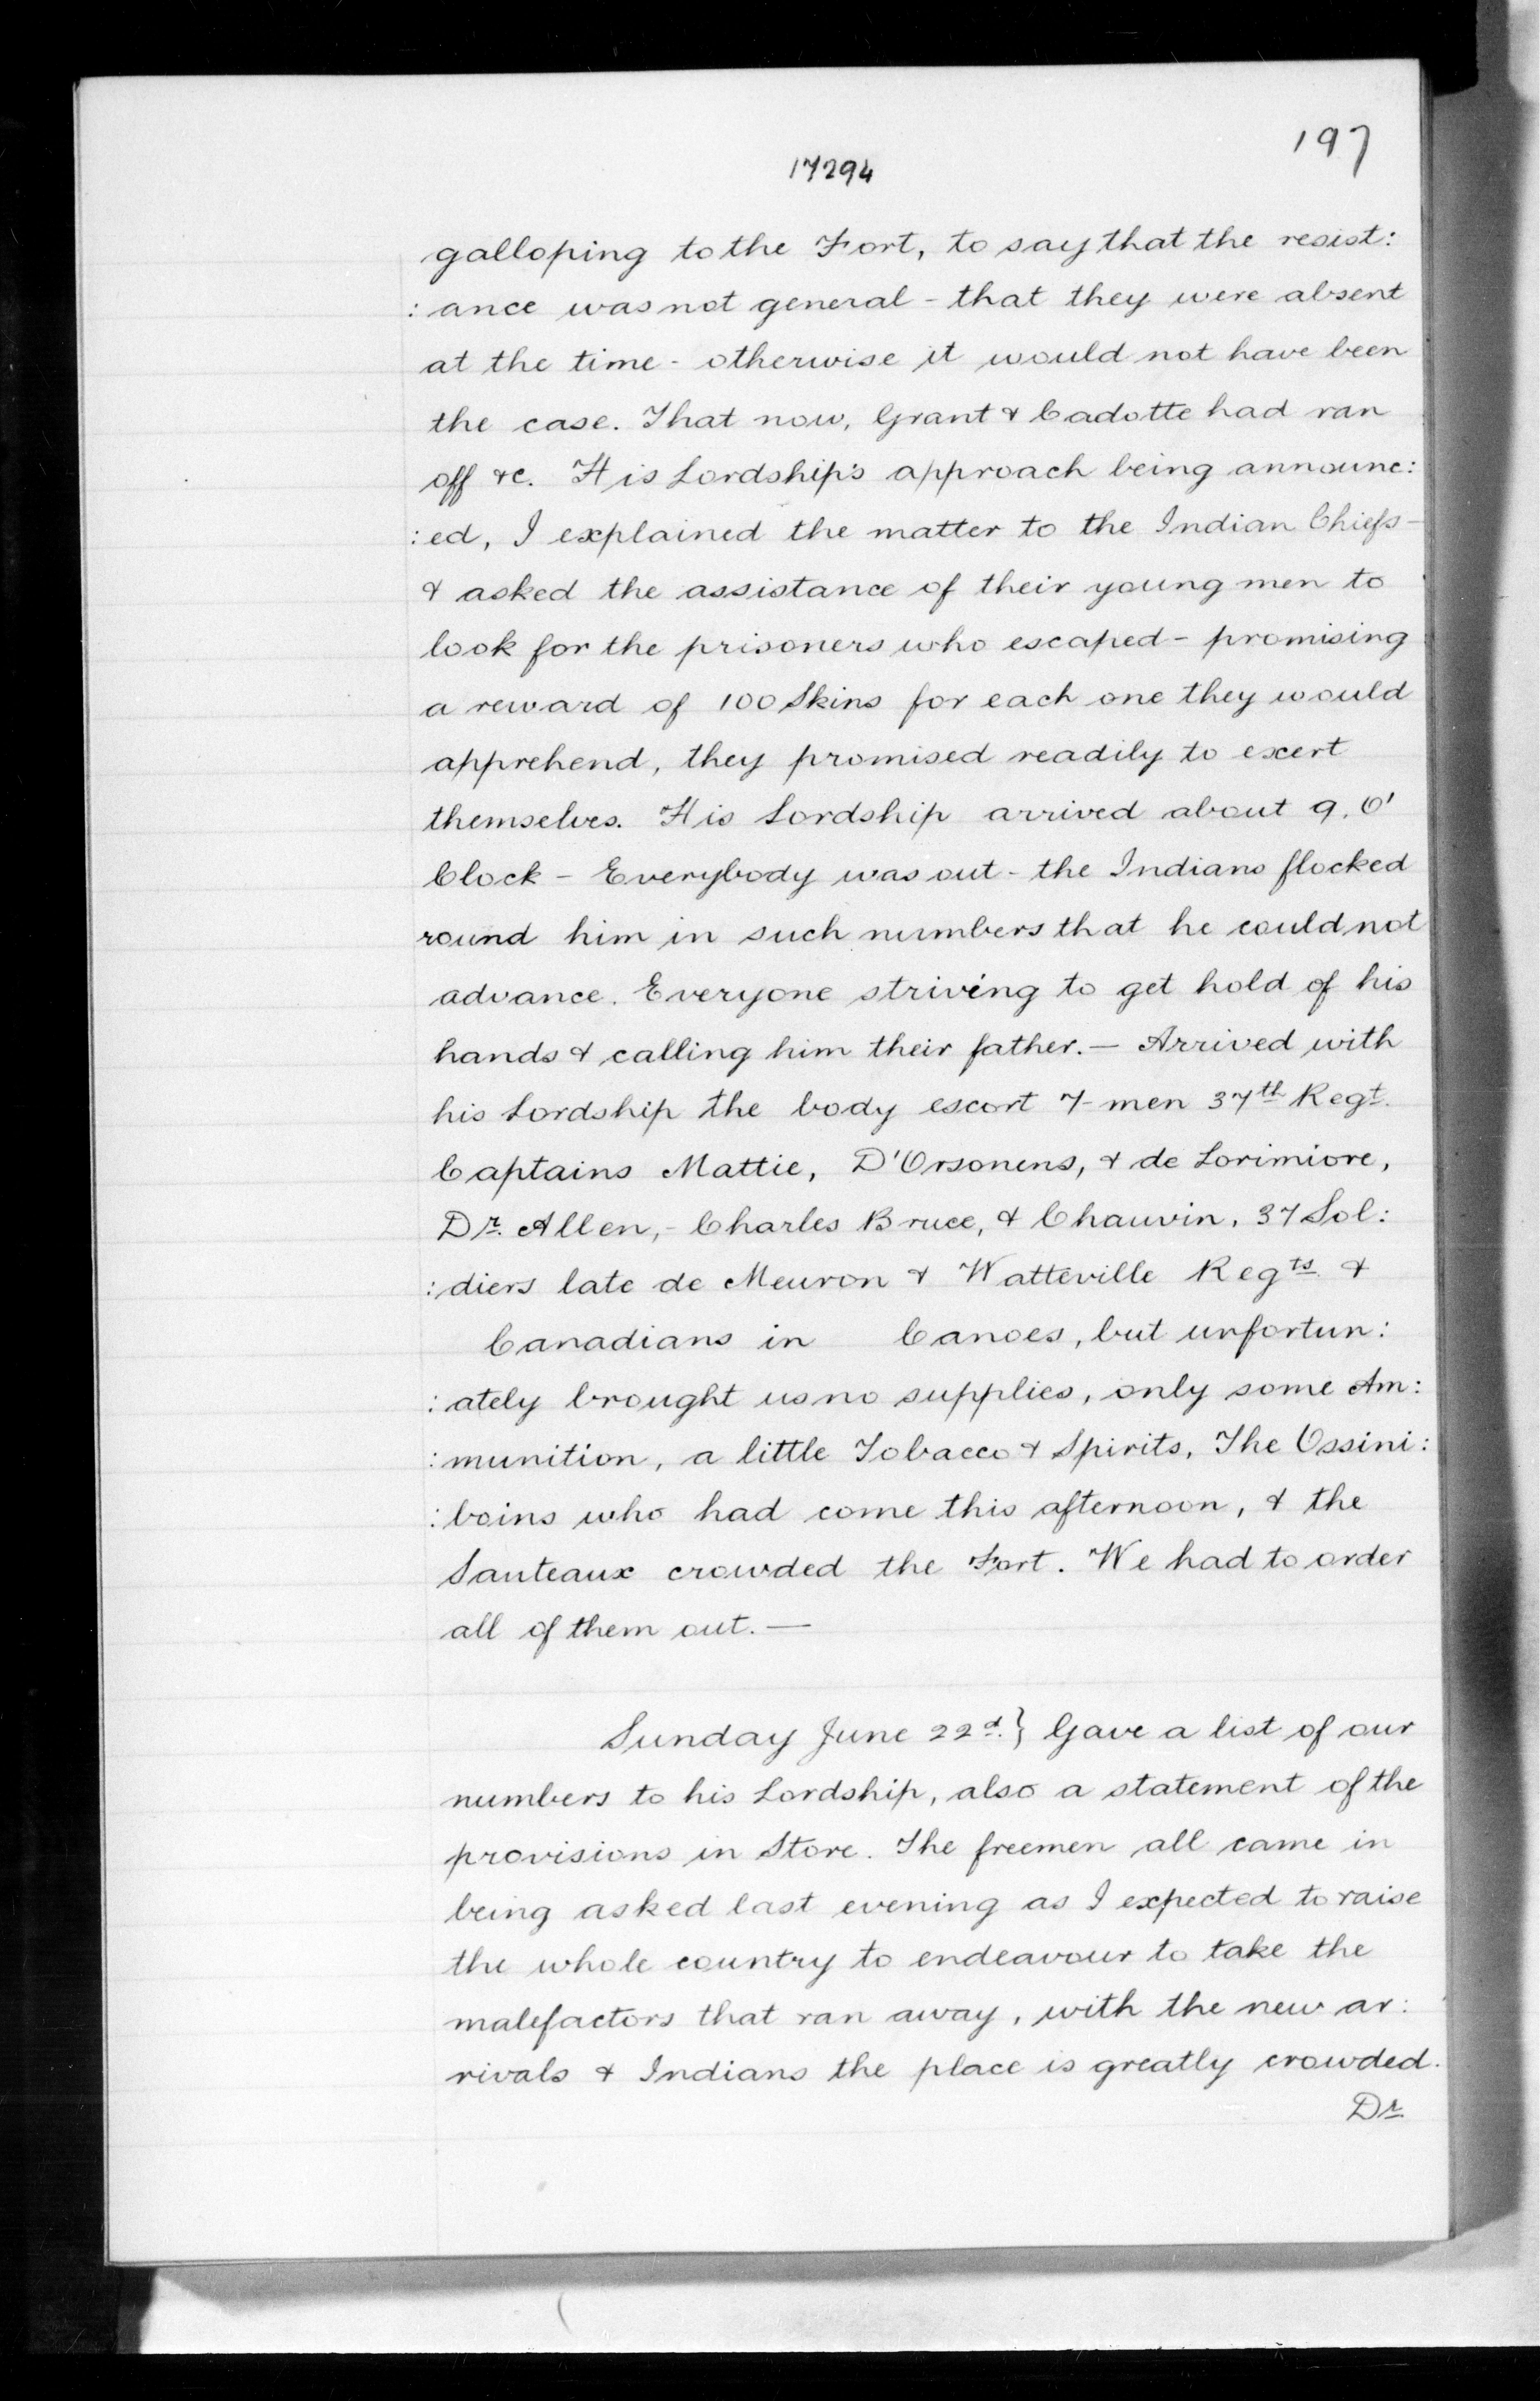 197
17294
galloping to the Fort, to say that the resist:
:ance was not general - that they were absent
at the time - otherwise it would not have been
the case. That now, Grant & Cadotte had ran
off &c. His Lordship's approach being announc:
:ed, I explained the matter to the Indian Chiefs -
& asked the assistance of their young men to
look for the prisoners who escaped - promising
a reward of 100 Skins for each one they would
apprehend, they promised readily to exert
themselves. His Lordship arrived about 9, O'
Clock - Everybody was out - the Indians flocked
round him in such numbers that he could not
advance. Everyone striving to get hold of his
hands & calling him their father. — Arrived with
his Lordship the body escort 7 men 37th Regt.
Captains Mattie, D'Orsonens, & de Lorimiore,
Dr. Allen, - Charles Bruce, & Chauvin, 37 Sol:
:diers late de Meuron & Watteville Regts. &
Canadians in Canoes, but unfortun:
:ately brought us no supplies, only some Am:
:munition, a little Tobacco & Spirits, The Ossini:
:boins who had come this afternoon, & the
Santeaux crowded the Fort. We had to order
all of them out. —
Sunday June 22d.} Gave a list of our
numbers to his Lordship, also a statement of the
provisions in Store. The freemen all came in
being asked last evening as I expected to raise
the whole country to endeavour to take the
malefactors that ran away, with the new ar:
rivals & Indians the place is greatly crowded.
Dr.